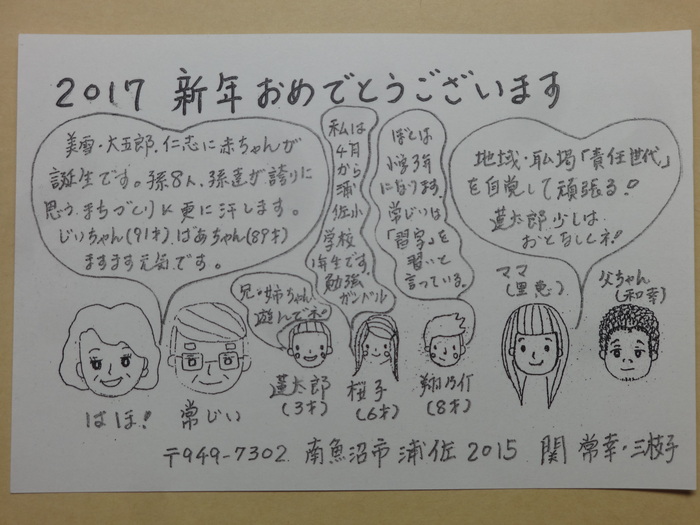 2017 新年おめでとうございます
美雪・大五郎、仁志に赤ちゃんが
誕生です。孫8人、孫達が誇りに
思うまちづくりに更に汗します。
じいちゃん(91才)ばあちゃん(89才)
ますます元気です。
兄・姉ちゃん
遊んでネ
私は
4月
から
浦
佐小
学校
1年生です。
勉強
ガンバル
ぼくは
小学3年
になります。
常じいは
「習字」を
習いと
言っている。
地域・職場「責任世代」
を自覚して頑張る!
蓮太郎少しは
おとなしくネ!
ママ
(里恵)
父ちゃん
(和幸)
ばほ!
常じい
蓮太郎
(3才)
桜子
(6才)
翔乃介
(8才)
〒949-7302 南魚沼市浦佐2015 関 常幸・三枝子